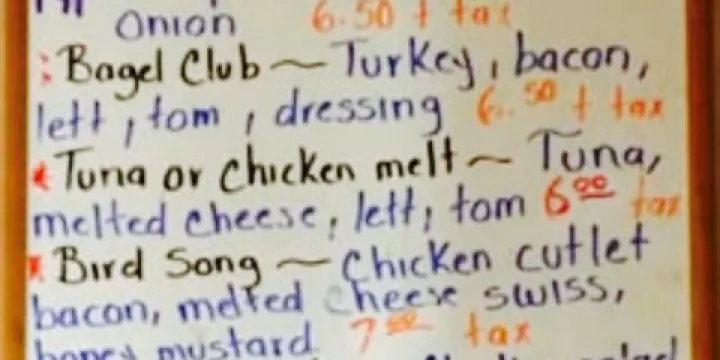 Onion 6.50 + tax
Bagel Club ~ Turkey, bacon,
lett, tom, dressing 6.50 + tax
Tuna or Chicken melt ~ Tuna,
melted cheese, lett, tom 6.00 tax
Bird Song ~ Chicken cutlet
bacon, melted cheese swiss,
honey mustard 7.00 tax